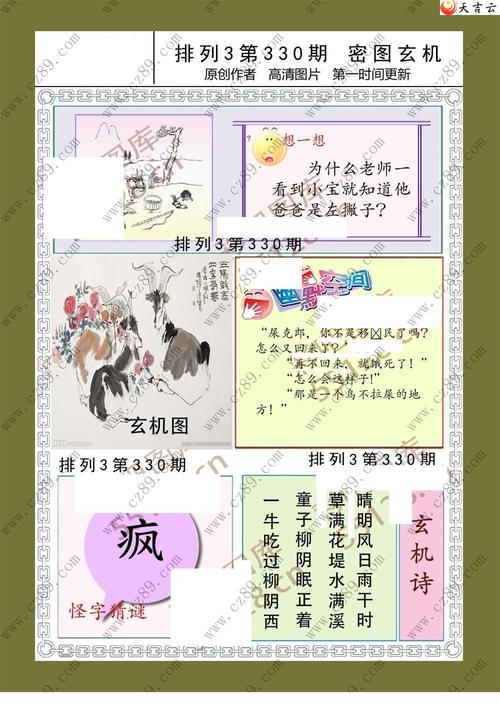 天吉云
排列3第330期 密图玄机
原创作者 高清图片 第一时间更新
想一想
为什么老师一
看到小宝就知道他
爸爸是左撇子?
排列3第330期
幽默空间
“屎克郎，你不是移民了吗?
怎么又回来了?”
“再不回来，就饿死了!”
“怎么会这样子!”
“那是一个鸟不拉屎的地
方!”
玄机图
排列3第330期
排列3第330期
疯
怪字猜谜
玄机诗
晴明风日雨干时
草满花堤水满溪
童子柳阴眠正着
一牛吃过柳阴西
www.cz89.com